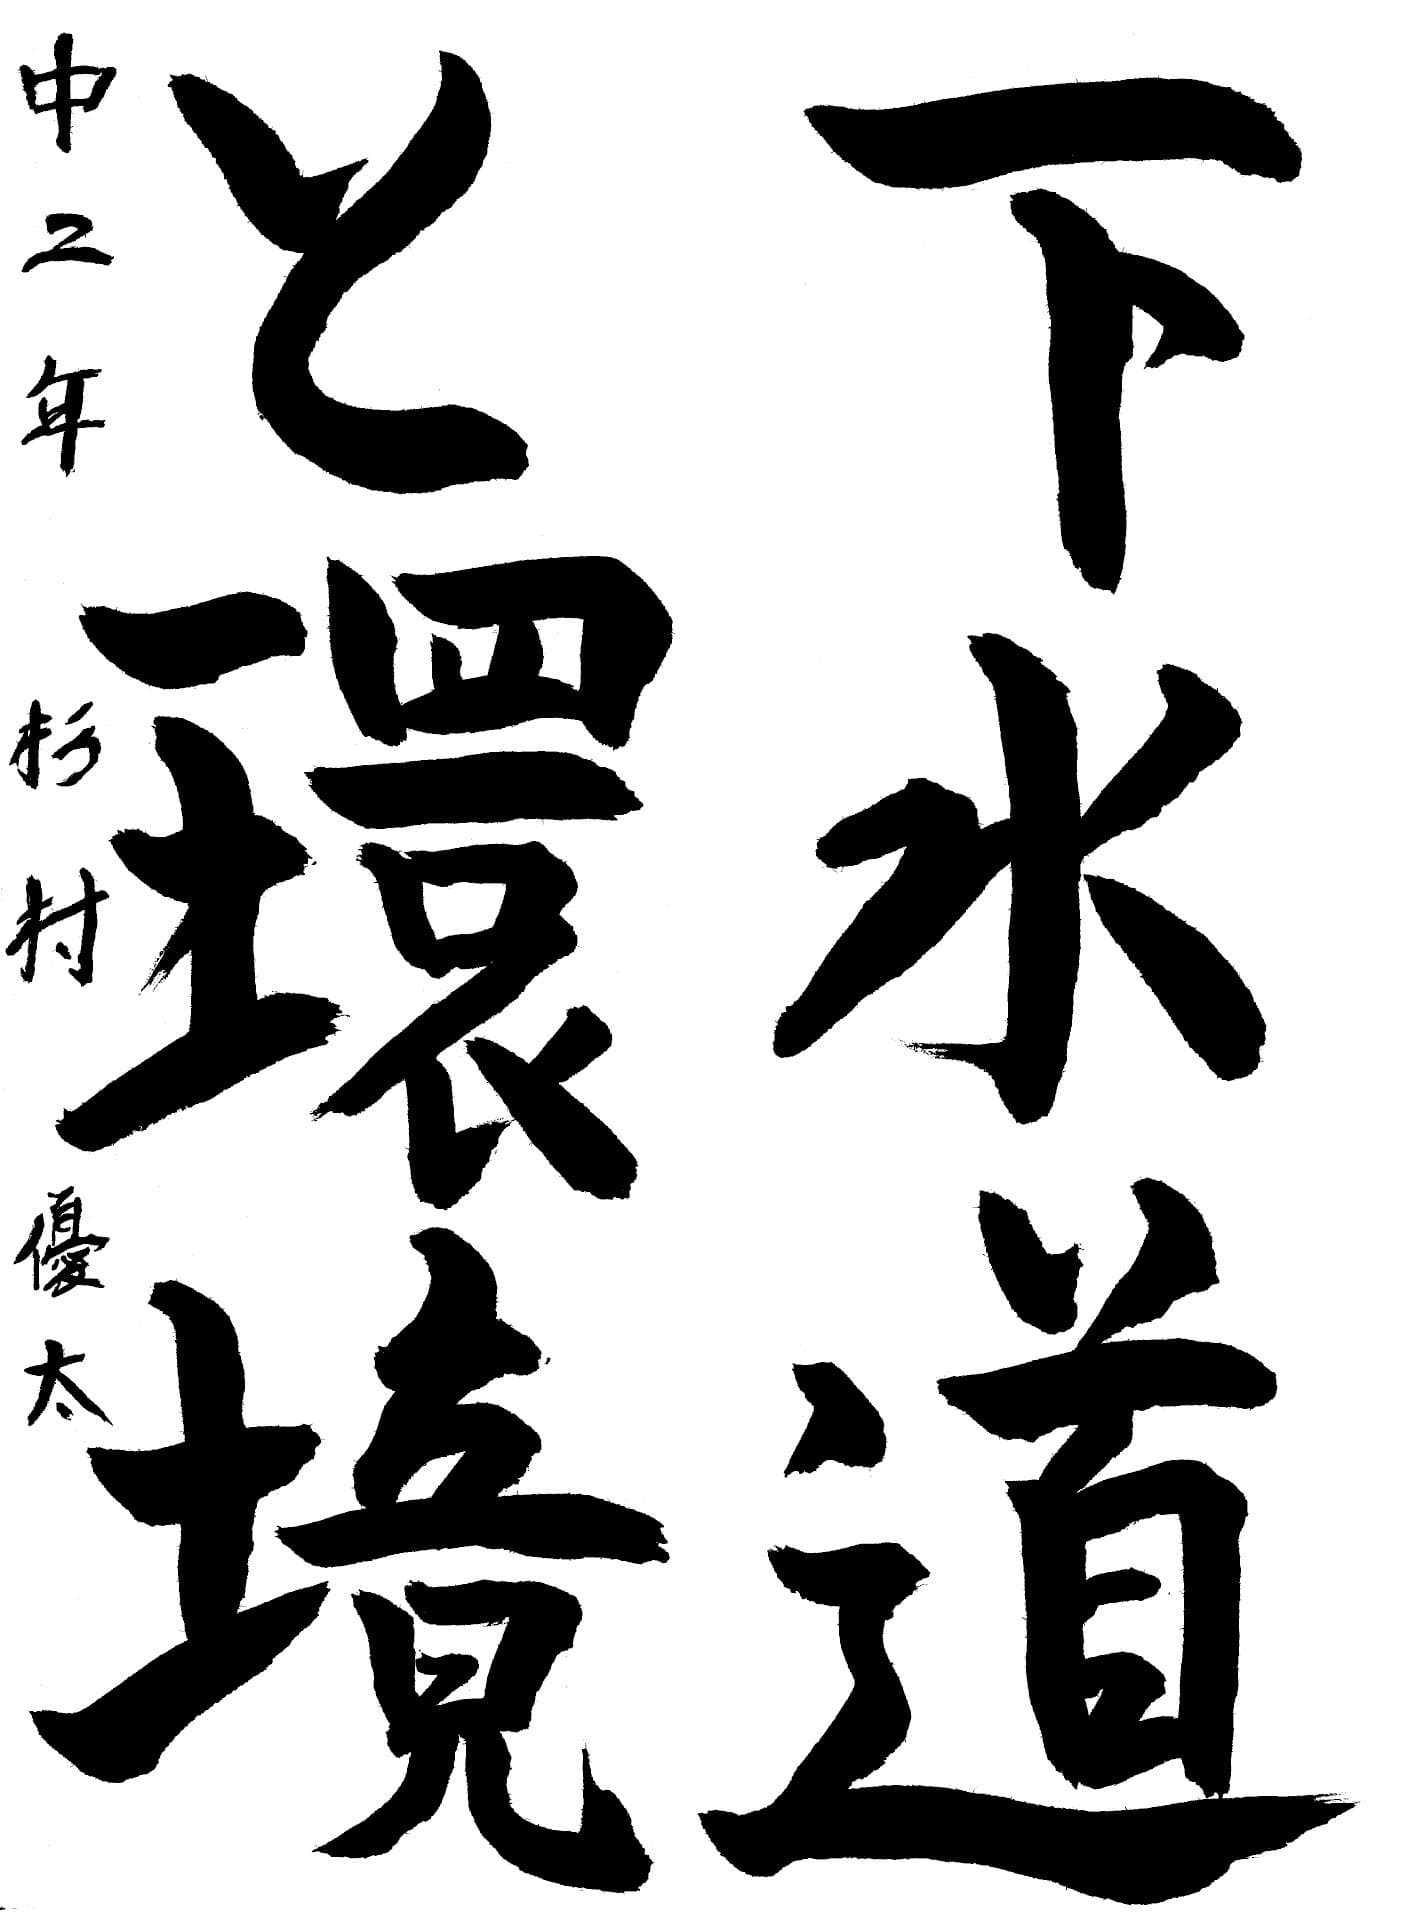 下水道
と環境
中二年 杉村 優太